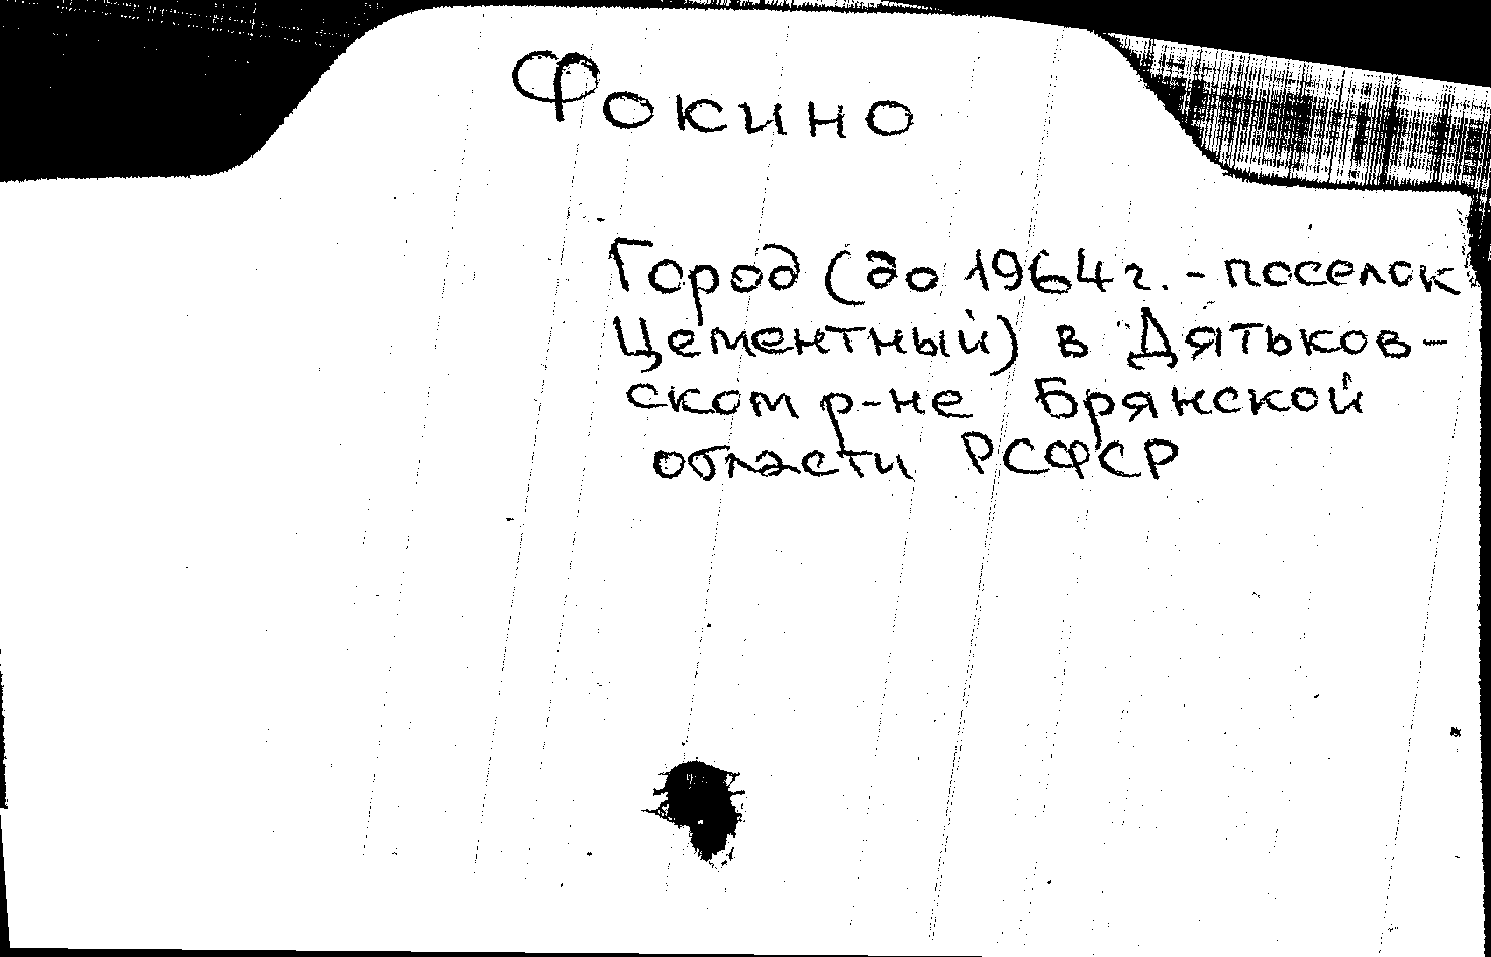 Фокино
Город (до 1964 г. - поселок
Цементный) в Дятьков-
ском р-не Брянской
области РСФСР